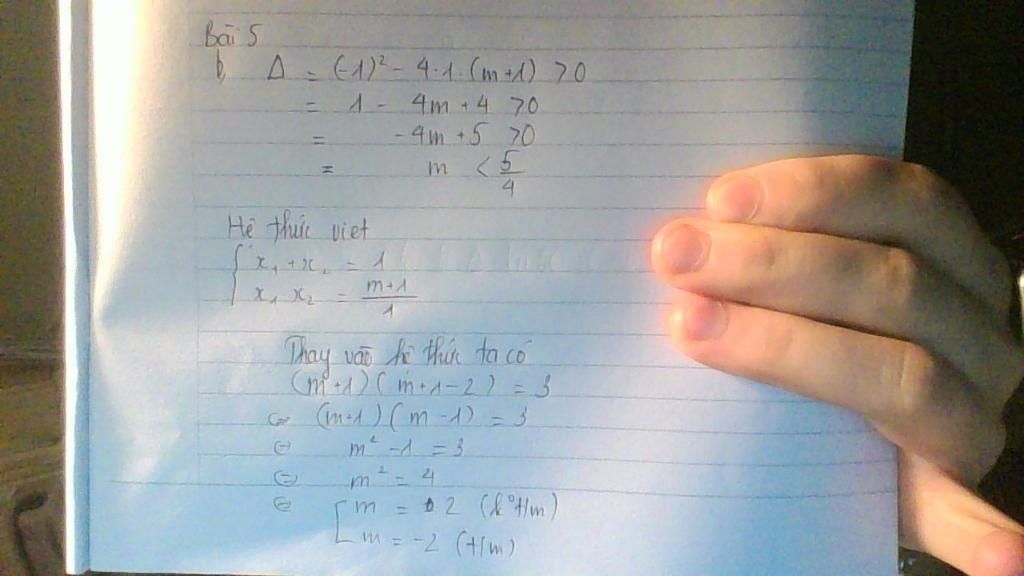 Bài 5
b, Δ = (-1)² - 4.1.(m+1) >0
= 1 - 4m + 4 >0
= -4m + 5 >0
= m < 5/4
Hệ thức viet
{ x₁ + x₂ = 1
x₁ x₂ = m+1/1
Thay vào hệ thức ta có
(m+1)(m+1-2) = 3
⇔ (m+1)(m-1) = 3
⇔ m² - 1 = 3
⇔ m² = 4
⇔ [ m = 2 (k° t/m)
m = -2 (t/m)